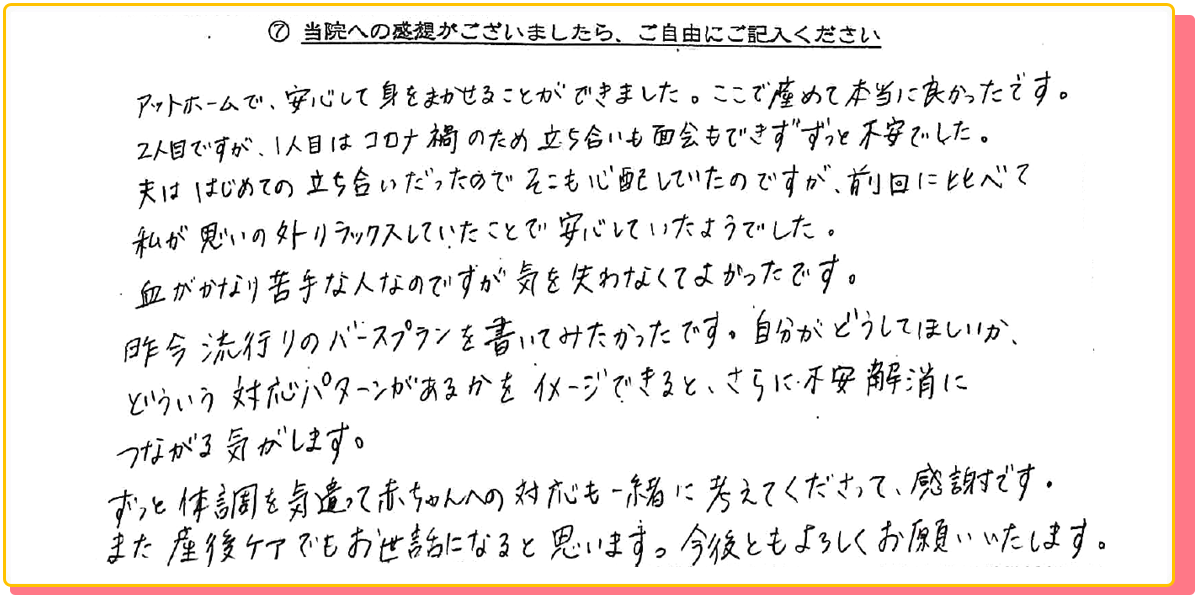 ⑦ 当院への感想がございましたら、ご自由にご記入ください
アットホームで、安心して身をまかせることができました。ここで産めて本当に良かったです。
2人目ですが、1人目はコロナ禍のため立ち合いも面会もできずずっと不安でした。
夫ははじめての立ち合いだったのでそこも心配していたのですが、前回に比べて
私が思いの外リラックスしていたことで安心していたようでした。
血がかなり苦手な人なのですが気を失わなくてよかったです。
昨今流行りのバースプランを書いてみたかったです。自分がどうしてほしいか、
どういう対応パターンがあるかをイメージできると、さらに不安解消に
つながる気がします。
ずっと体調を気遣って赤ちゃんへの対応も一緒に考えてくださって、感謝です。
また産後ケアでもお世話になると思います。今後ともよろしくお願いいたします。